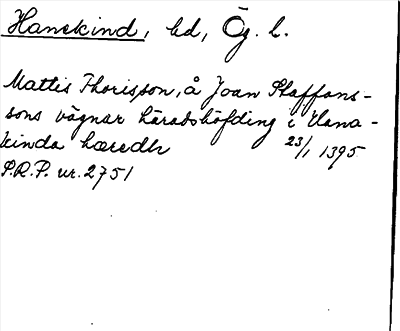 Hanekind, hd, Ög. l.
Mattis Thorisson, å Joan Staffans-
sons vägnar häradshöfding i Hana-
kinda hæredh 23/1 1395
S.R.P. nr. 2751